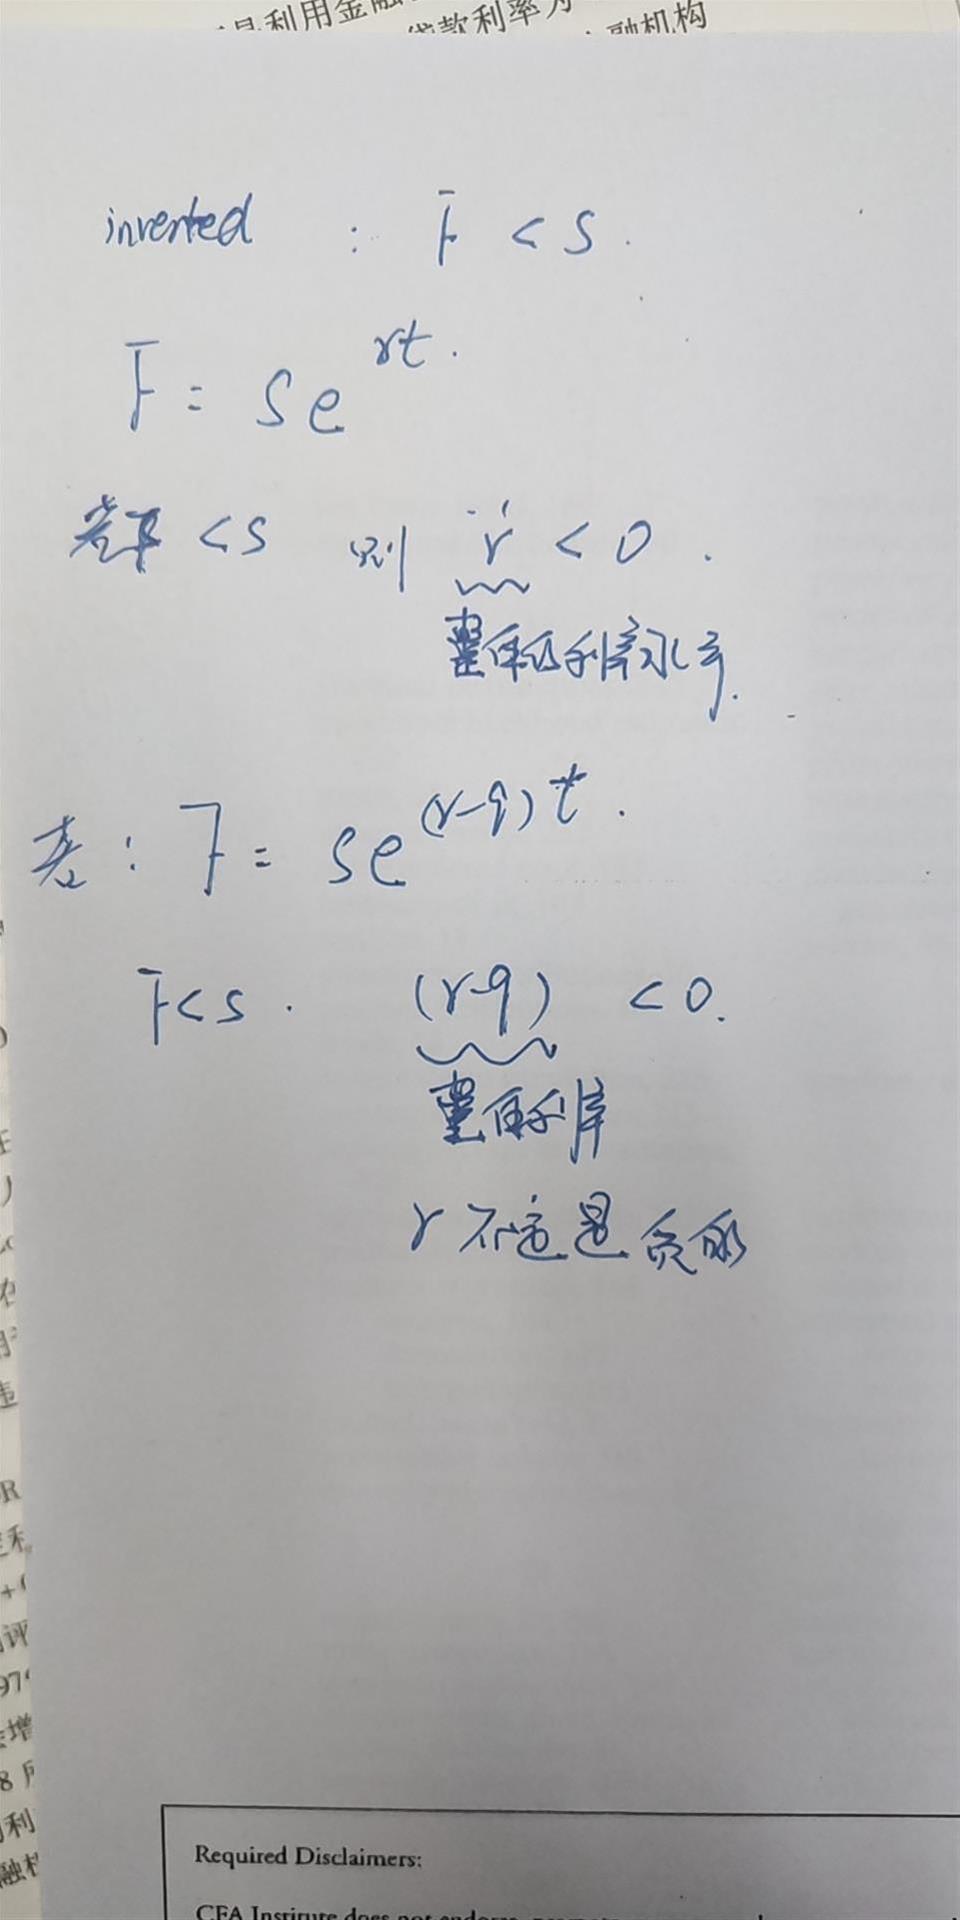 是利用金融
贷款利率为
融机构
inverted : F < S.
F = Se^{rt}.
若F < S 则 r < 0.
整体的利率水平.
若: F = Se^{(r-q)t}.
F<S. (r-q) <0.
整体利率
r不一定是负的
R
+
评
97
增
8
利
融
Required Disclaimers:
CFA Institute does not endorse,